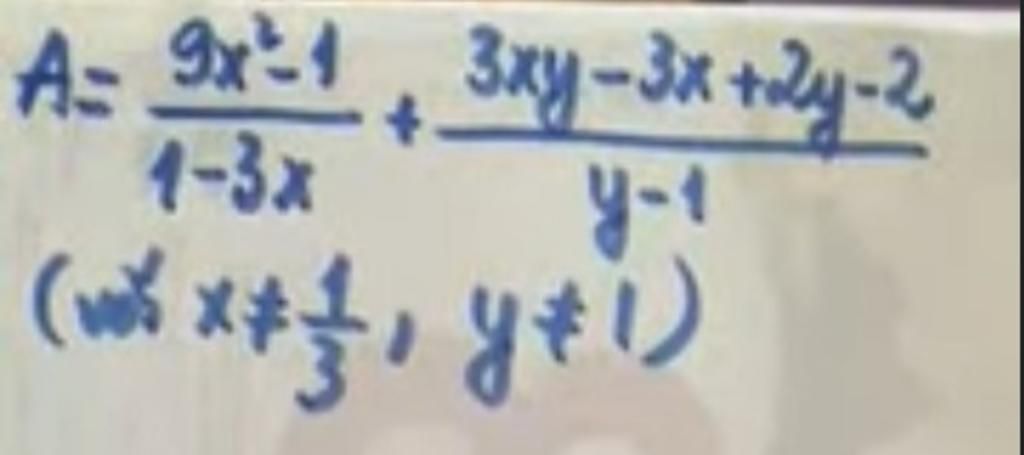 A = \frac{9x^2-1}{1-3x} + \frac{3xy-3x+2y-2}{y-1}
(với x ≠ \frac{1}{3}, y ≠ 1)